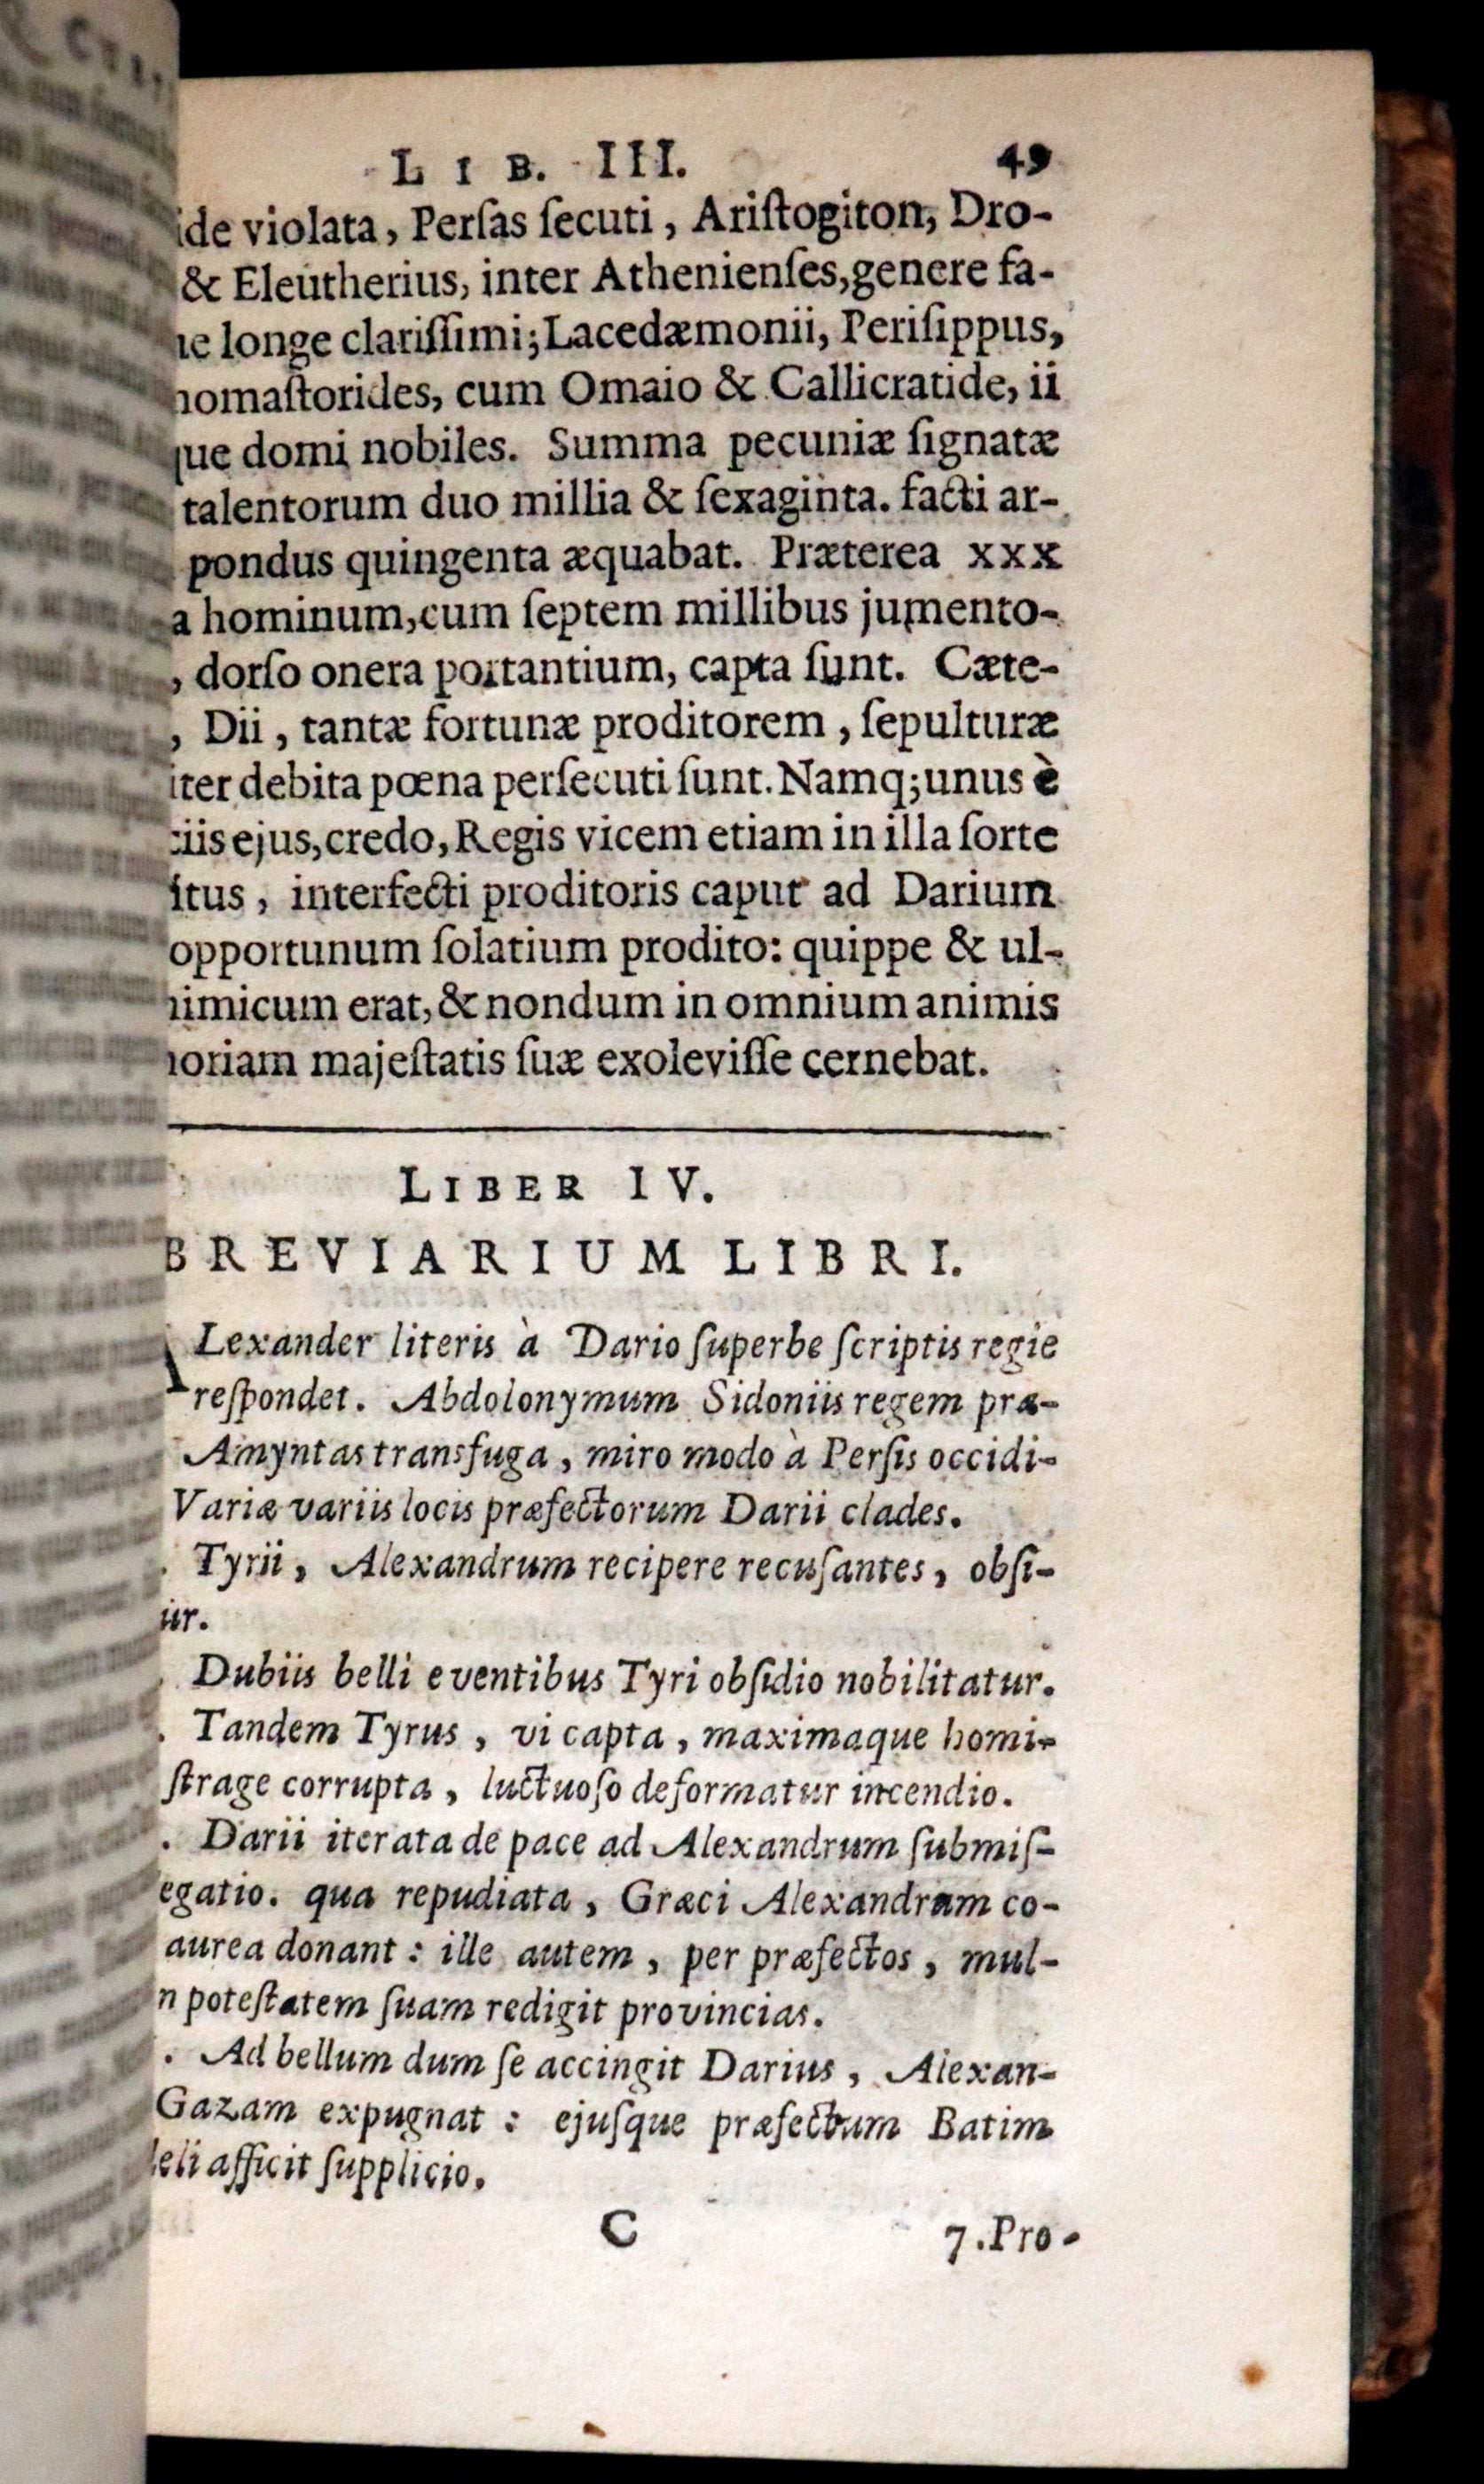 LIB. III. 49
violata, Perſas ſecuti, Ariſtogiton, Dro-
& Eleutherius, inter Athenienſes, genere fa-
longe clariſſimi; Lacedæmonii, Periſippus,
nomaſtorides, cum Omaio & Callicratide, ii
que domi nobiles. Summa pecuniæ ſignatæ
talentorum duo millia & ſexaginta. facti ar-
pondus quingenta æquabat. Præterea xxx
a hominum, cum ſeptem millibus jumento-
, dorſo onera portantium, capta ſunt. Cæte-
, Dii, tantæ fortunæ proditorem, ſepulturæ
iter debita pœna perſecuti ſunt. Namq; unus è
ciis ejus, credo, Regis vicem etiam in illa ſorte
itus, interfecti proditoris caput ad Darium
opportunum ſolatium prodito: quippe & ul-
nimicum erat, & nondum in omnium animis
moriam majeſtatis ſuæ exoleviſſe cernebat.
LIBER IV.
BREVIARIUM LIBRI.
ALexander literis à Dario ſuperbe ſcriptis regie
reſpondet. Abdolonymum Sidoniis regem præ-
Amyntas transfuga, miro modo à Perſis occidi-
Variæ variis locis præfectorum Darii clades.
. Tyrii, Alexandrum recipere recuſantes, obſi-
ur.
. Dubiis belli eventibus Tyri obſidio nobilitatur.
. Tandem Tyrus, vi capta, maximaque homi-
ſtrage corrupta, luctuoſo deformatur incendio.
. Darii iterata de pace ad Alexandrum ſubmiſ-
egatio. qua repudiata, Græci Alexandrum co-
aurea donant: ille autem, per præfectos, mul-
n poteſtatem ſuam redigit provincias.
. Ad bellum dum ſe accingit Darius, Alexan-
Gazam expugnat: ejuſque præfectum Batim
deli afficit ſupplicio.
C 7. Pro-